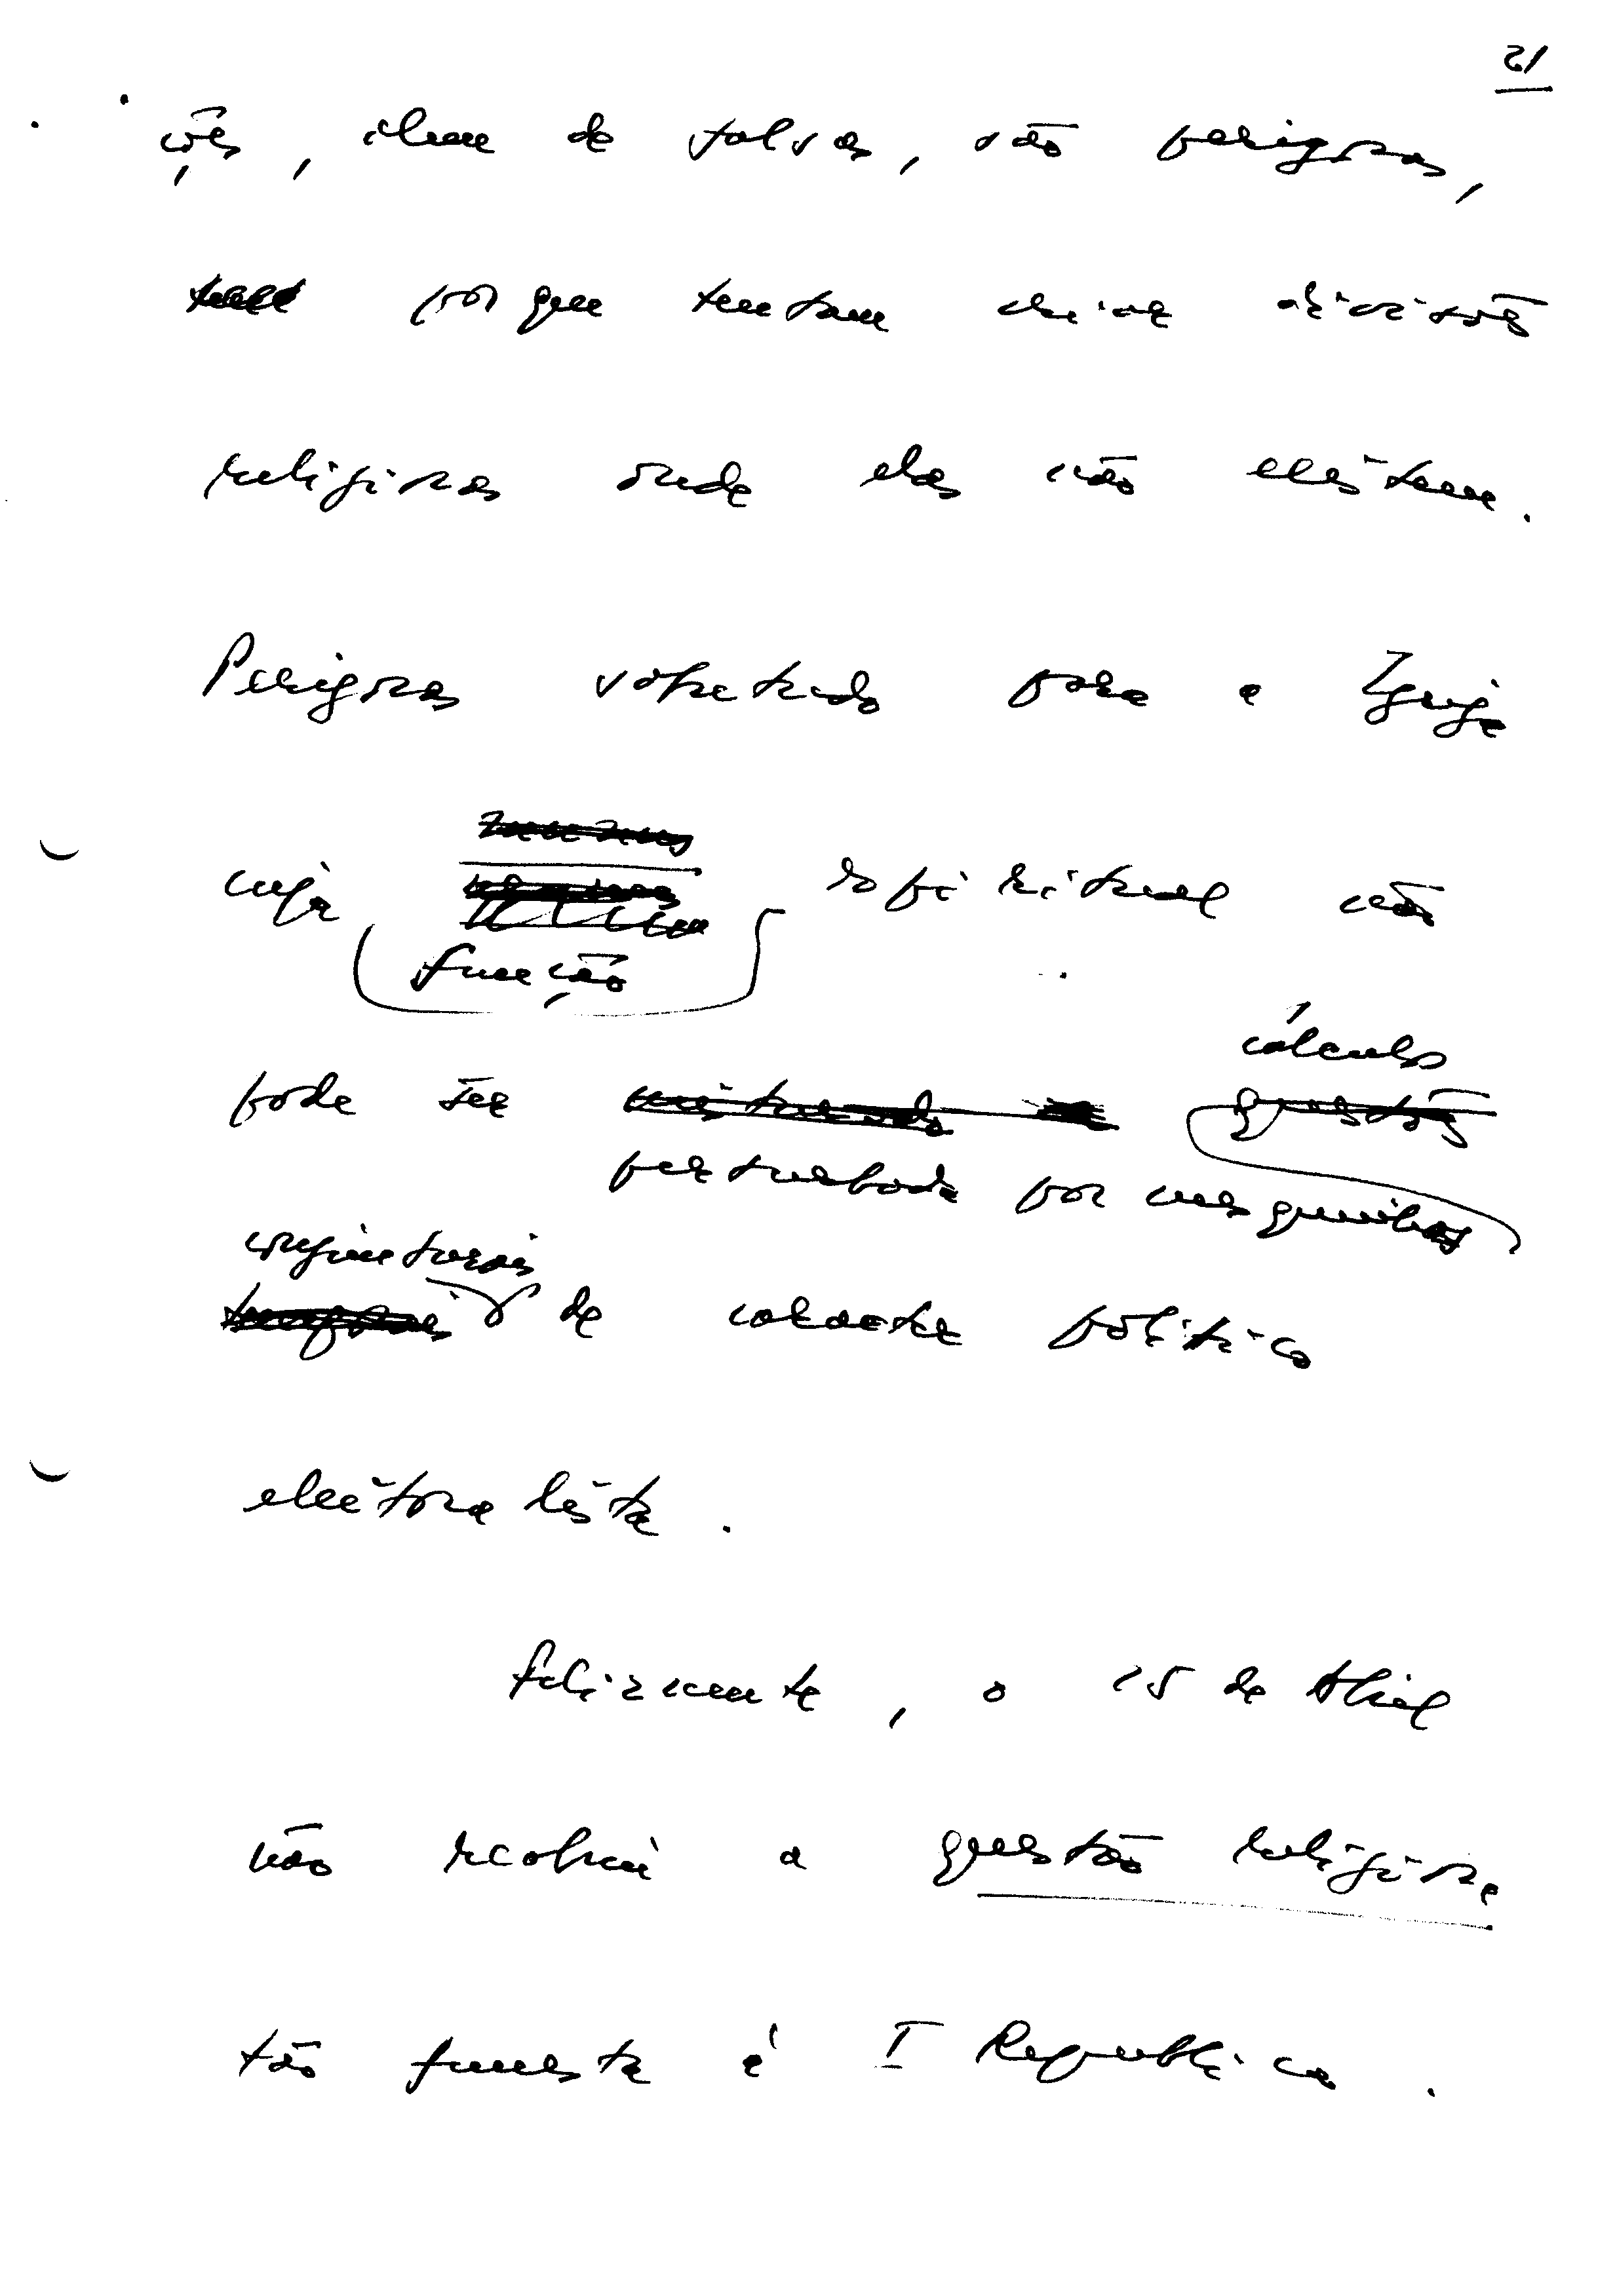 21
ções, além de falsas, são perigosas,
porque tentam criar divisões
religiosas onde elas não existem.
Perigosas sobretudo para a Igreja
cuja função espiritual não
pode ser perturbada por mesquinhos cálculos
conjunturais de carácter político
eleitoralista.
Felizmente, o 25 de Abril
não reabriu a questão religiosa
tão funesta à I República.